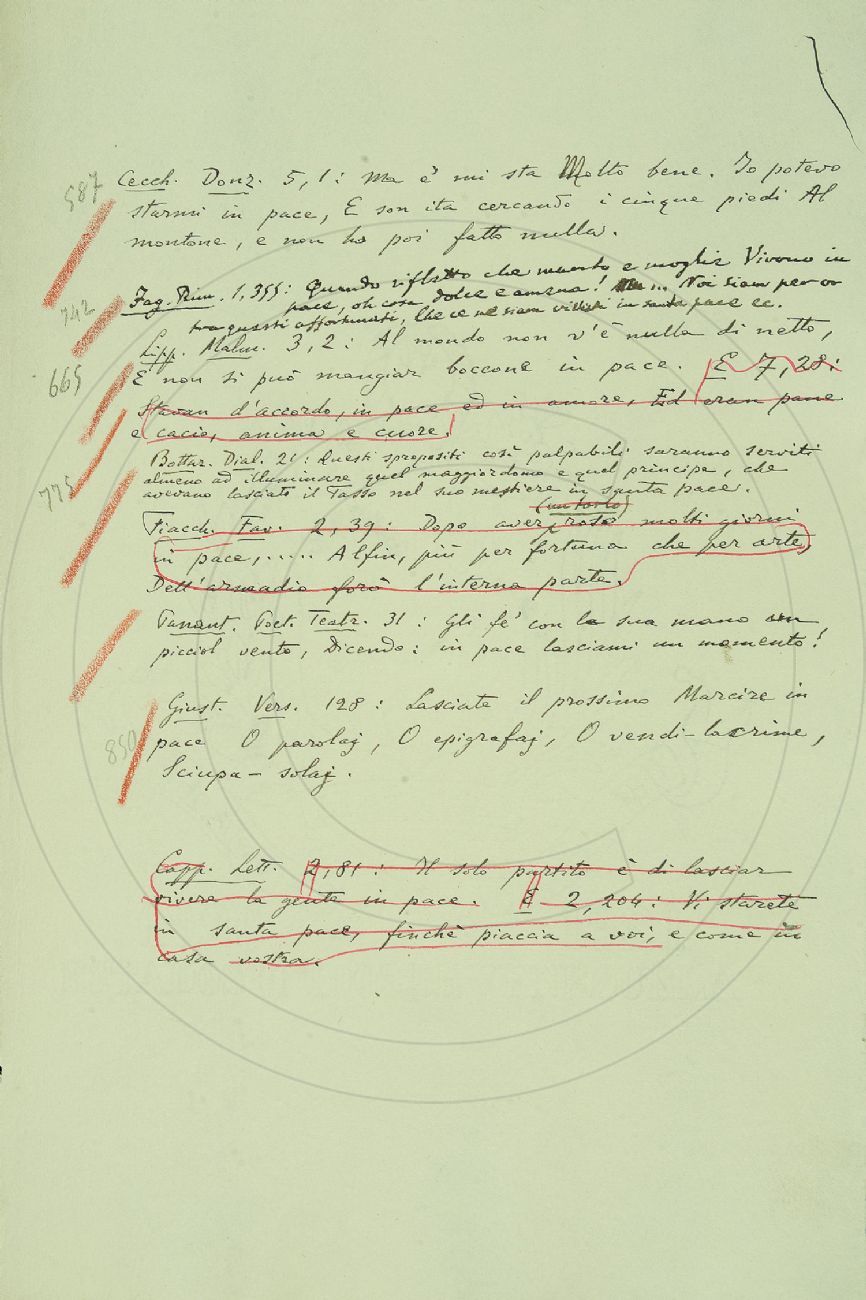 587 Cecch. Donz. 5, 1: Ma e' mi sta Molto bene. Io potevo
starmi in pace, E son ita cercando i cinque piedi Al
montone, e non ho poi fatto nulla.
742 Fag. Rim. 1, 355: Quando rifletto che marito e moglie Vivono in
pace, oh cosa dolce e amena! ... Noi siam per or
tra questi affortunati, Che ce ne siam vissuti in santa pace ec.
Lipp. Malm. 3, 2: Al mondo non v'è nulla di netto,
665 E non si può mangiar boccone in pace. E 7, 28:
Stavan d'accordo, in pace ed in amore, Ed eran pane
e cacio, anima e cuore.
Bottar. Dial. 21: Questi spropositi così palpabili saranno serviti
almeno ad illuminare quel maggiordomo e quel principe, che
775 avevano lasciato il Tasso nel suo mestiere in santa pace.
(un topo)
Fiacch. Fav. 2, 39: Dopo aver roso molti giorni
in pace,.... Alfin, più per fortuna che per arte,
Dell'armadio forò l'interna parte.
Panant. Poet. Teatr. 31: Gli fe' con la sua mano un
picciol vento, Dicendo: in pace lasciami un momento!
Giust. Vers. 128: Lasciate il prossimo Marcire in
850 pace O parolaj, O epigrafaj, O vendi-lacrime,
Sciupa-solaj.
Capp. Lett. 2, 81: Il solo partito è di lasciar
vivere la gente in pace. E 2, 204: Vi starete
in santa pace, finchè piaccia a voi, e come in
casa vostra.